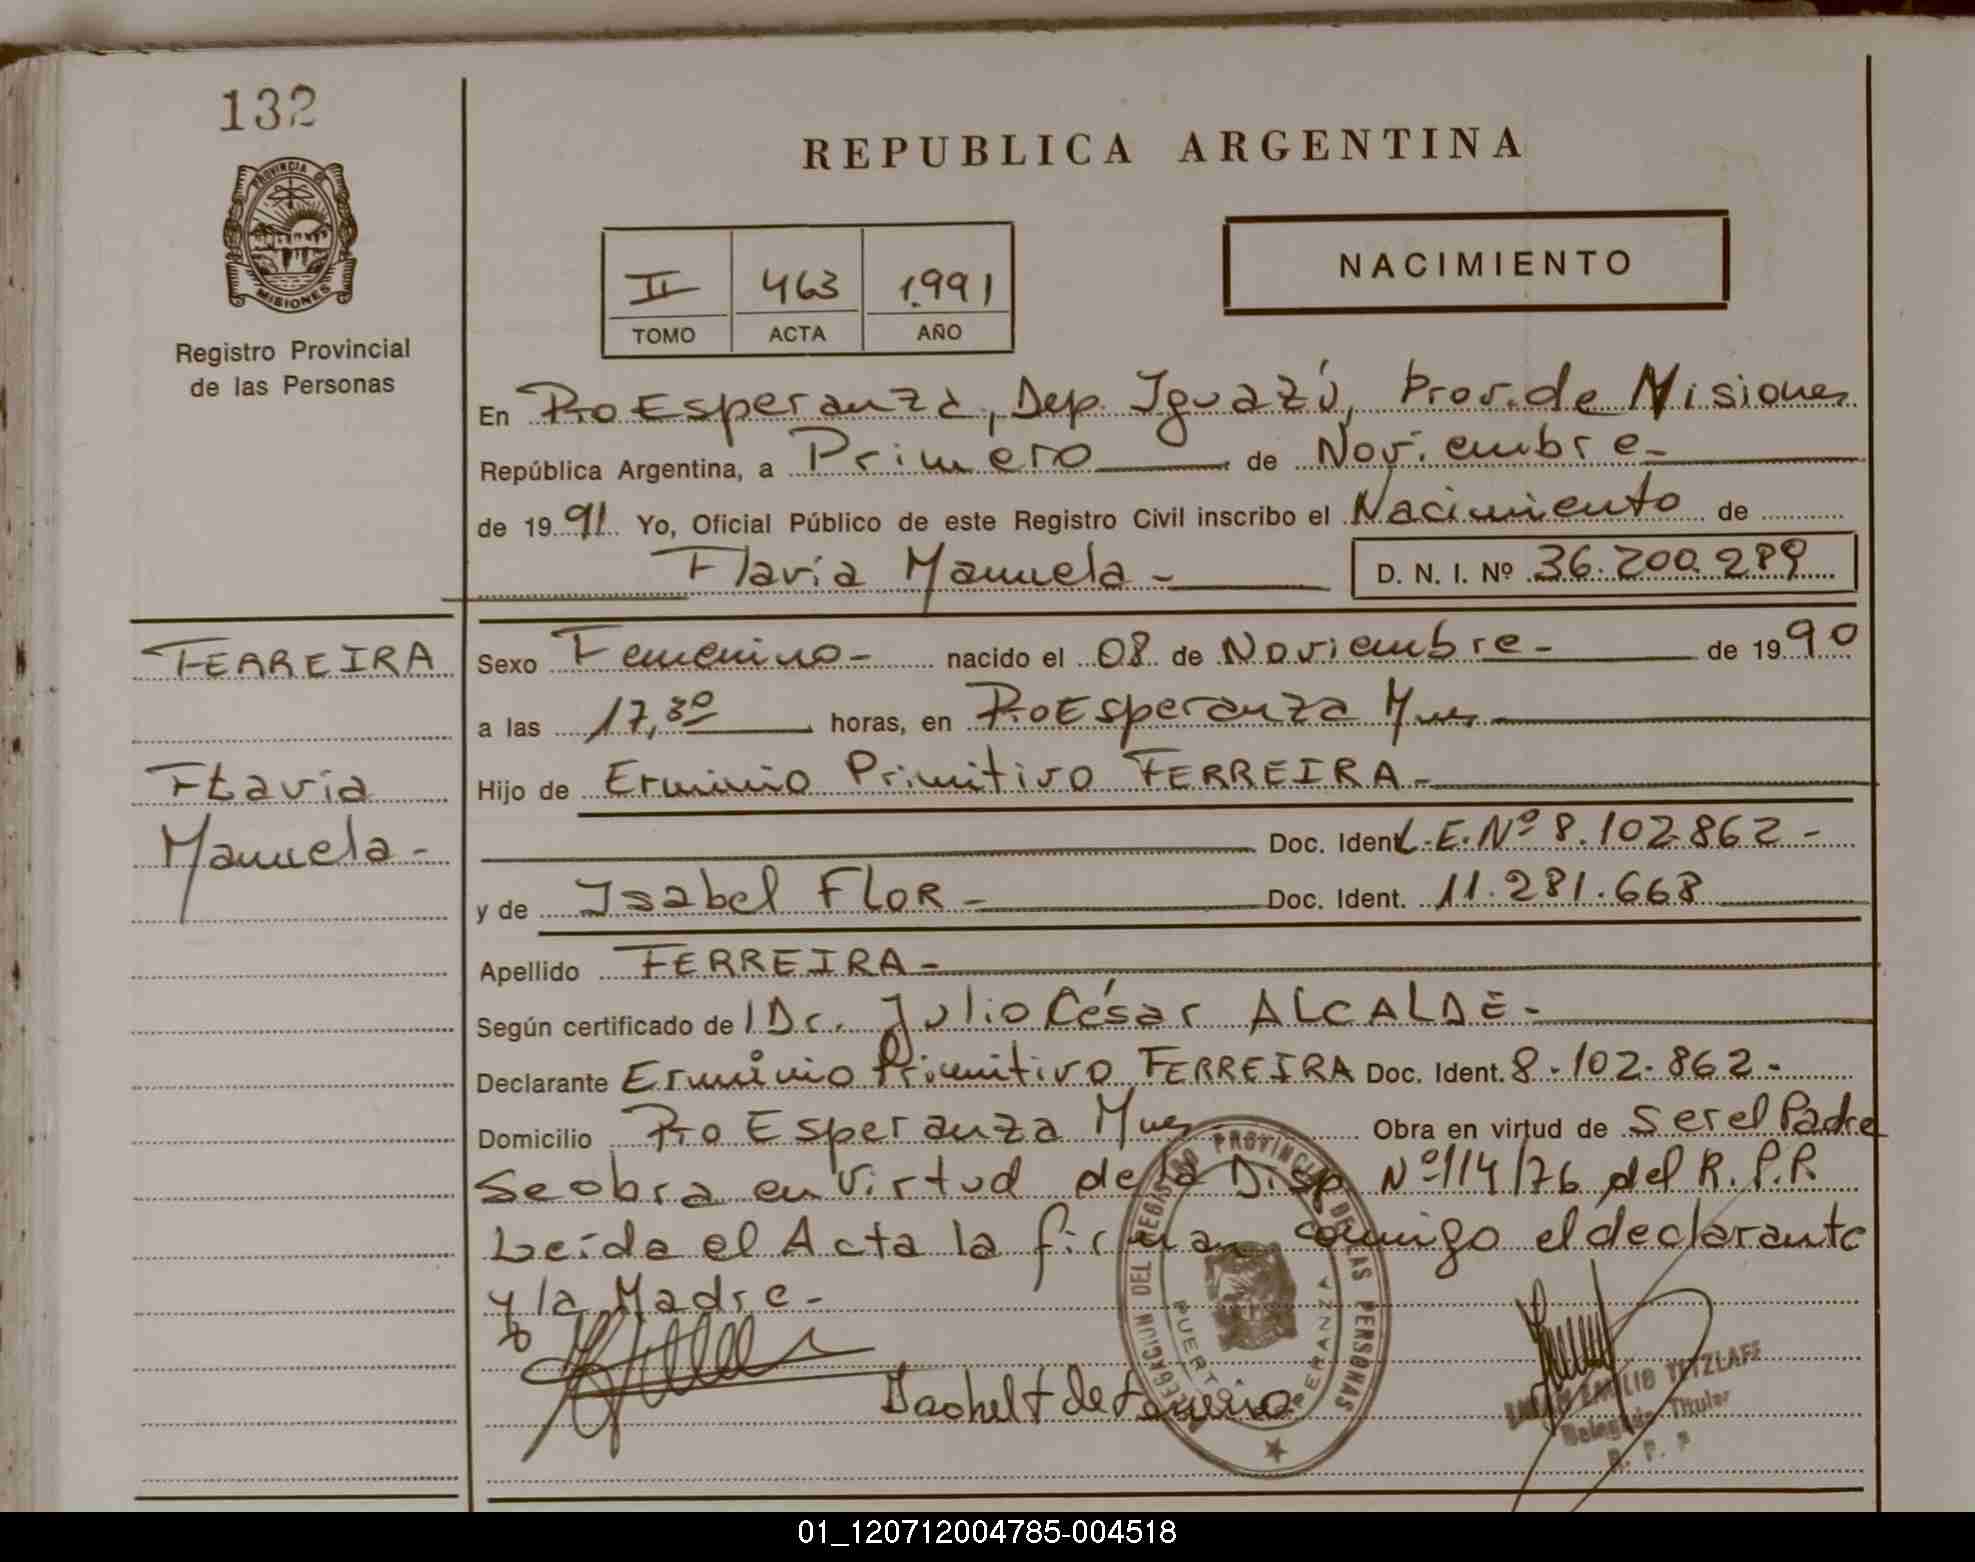 132
PROVINCIA DE
MISIONES
Registro Provincial
de las Personas
REPUBLICA ARGENTINA
II 463 1.991
TOMO ACTA AÑO
NACIMIENTO
En Pto Esperanza, Dep. Iguazú, Prov. de Misiones
República Argentina, a Primero de Noviembre -
de 19 91 Yo, Oficial Público de este Registro Civil inscribo el Nacimiento de
Flavia Manuela - D. N. I. Nº 36.200.289
FERREIRA
Flavia
Manuela -
Sexo Femenino - nacido el 08 de Noviembre - de 19 90
a las 17,30 horas, en Pto Esperanza Mnes
Hijo de Erminio Primitivo FERREIRA -
Doc. Ident. L.E. Nº 8.102.862 -
y de Isabel FLOR - Doc. Ident. 11.281.668
Apellido FERREIRA -
Según certificado del Dr. Julio César ALCALDE -
Declarante Erminio Primitivo FERREIRA Doc. Ident. 8.102.862 -
Domicilio Pto Esperanza Mnes Obra en virtud de ser el Padre
Se obra en Virtud de la Disp. Nº 114/76 del R.P.P.
Leída el Acta la firman conmigo el declarante
y la Madre -
DELEGACION DEL REGISTRO PROVINCIAL DE LAS PERSONAS
PUERTO ESPERANZA
de Ferreira
EMILIO TETZLAFF
Delegado Titular
R. P. P
01_120712004785-004518